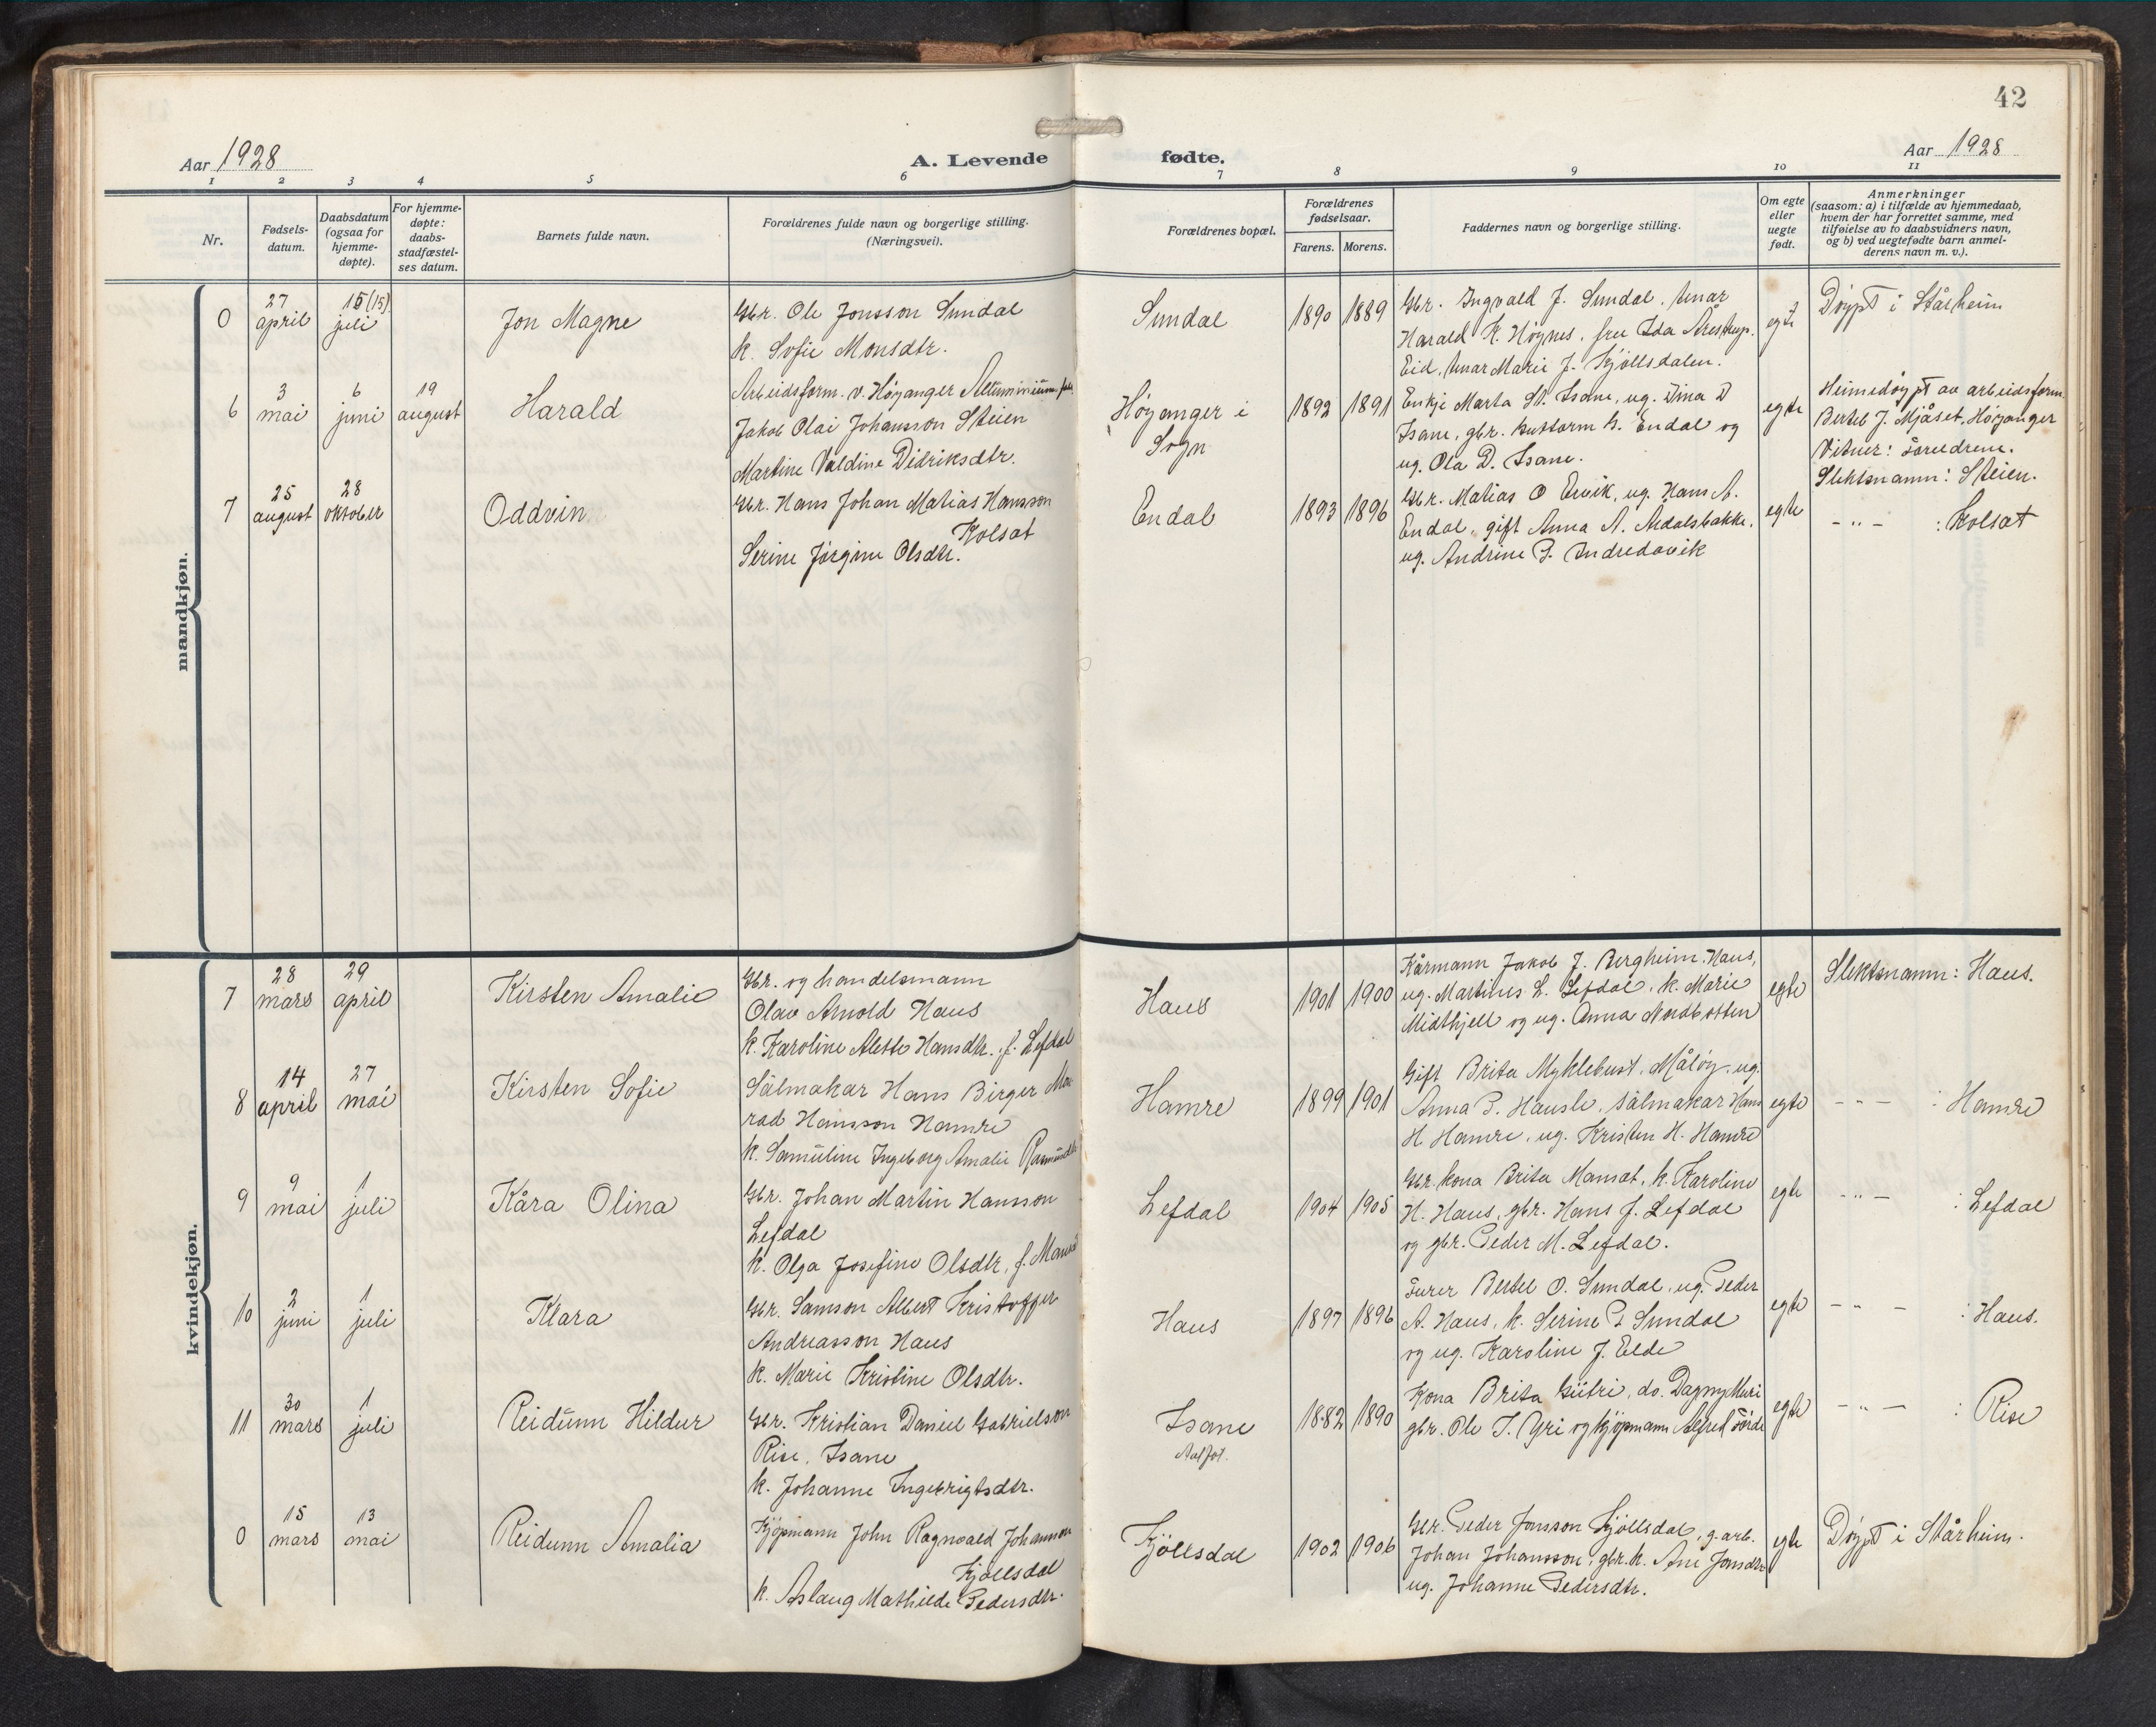 42
Aar 1928
A. Levende
fødte.
Aar 1928
1 2 3 4 5 6 7 8 9 10 11
Nr.
Fødsels-
datum.
Daabsdatum
(ogsaa for
hjemme-
døpte).
For hjemme-
døpte:
daabs-
stadfæstel-
ses datum.
Barnets fulde navn.
Forældrenes fulde navn og borgerlige stilling.
(Næringsvei).
Forældrenes bopæl.
Forældrenes
fødselsaar.
Farens. Morens.
Faddernes navn og borgerlige stilling.
Om egte
eller
uegte
født.
Anmerkninger
(saasom: a) i tilfælde av hjemmedaab,
hvem der har forrettet samme, med
tilføielse av to daabsvidners navn,
og b) ved uegtefødte barn anmel-
derens navn m. v.).
mandkjøn.
0
27
april
15 (15)
juli
Jon Magne
Gbr. Ole Jonsson Sundal
k. Sofie Monsdtr.
Sundal
1890 1889
Gbr. Ingvald J. Sundal, Unar
Harald K. Høynes, fru Ida Årestrup,
Eid, Unar Marie J. Kjöllsdalen.
egte
Döypt i Stårheim
6
3
mai
6
juni
19
august
Harald
Arbeidsform. v. Höyanger Aluminium.fab.
Jakob Olai Johansson Steien
Martine Valdine Didriksdtr.
Höyanger i
Sogn
1892 1891
Enkje Marta Isane, ug. Dina D
Isane, gbr. Guttorm h. Endal og
ug. Ola D. Isane.
egte
Heimedöypt av arbeidsform.
Bertel J. Mjåset, Höyanger
Vitner: Foreldrene.
Slektsnamn: Steien.
7
25
august
28
oktober
Oddvin
Gbr. Hans Johan Matias Hansson
Kolsat
Serine Jörgine Olsdtr.
Endal
1893 1896
Gbr. Matias O Ervik, ug. Hans A.
Endal, gift Anna A. Årdalsbakke,
ug. Andrine P. Indredavik
egte
– " – : Kolsat
kvindekjøn.
7
28
mars
29
april
Kirsten Amalie
Gbr. og handelsmann
Olav Arnold Haus
k. Karoline Alette Hansdtr. f. Lefdal
Haus
1901 1900
Kårmann Jakob J. Bergheim, Haus,
ug. Martines L. Lefdal, k. Marie
Midthjell og ug. Anna Nordbotten
egte
Slektsnamn: Haus.
8
14
april
27
mai
Kirsten Sofie
Sålmakar Hans Birger Mon
rad Hansson Hamre
k. Samuline Ingeborg Amalie Rasmusdtr
Hamre
1899 1901
Gift Brita Myklebust, Måløy, ug.
Anna P. Hausle, sålmakar Hans
H. Hamre, ug. Kristen H. Hamre
egte
– " – : Hamre
9
9
mai
1
juli
Kåra Olina
Gbr. Johan Martin Hansson
Lefdal
k. Olga Josefine Olsdtr, f. Mansat
Lefdal
1904 1905
Gbr. kona Brita Mansat, k. Karoline
H. Haus, gbr. Hans J. Lefdal
og gbr. Peder M. Lefdal.
egte
– " – : Lefdal
10
2
juni
1
juli
Klara
Gbr. Samson Albert Kristoffer
Andreasson Haus
k. Marie Kristine Olsdtr.
Haus
1897 1896
Furer Bertel O. Sundal, ug. Peder
A. Haus, k. Serine P. Sundal
og ug. Karoline J. Eide
egte
– " – : Haus.
11
30
mars
1
juli
Reidunn Hildur
Gbr. Kristian Daniel Gabrielson
Rise, Isane
k. Johanne Ingebrigtsdtr.
Isane
Aalfot.
1882 1890
Kona Brita, do. Dagny Muri
gbr. Ole I. Myri og kjöpmann Alfred Förde
egte
– " – : Rise
0
15
mars
13
mai
Reidunn Amalia
Kjöpmann John Ragnvald Johannson
Kjöllsdal
k. Aslaug Mathilde Pedersdtr.
Kjöllsdal
1902 1906
Gbr. Peder Jonsson Kjöllsdal, g. arb.
Johan Johansson, gbr. k. Ane Jonsdtr
ug. Johanne Pedersdtr.
egte
Döypt i Stårheim.